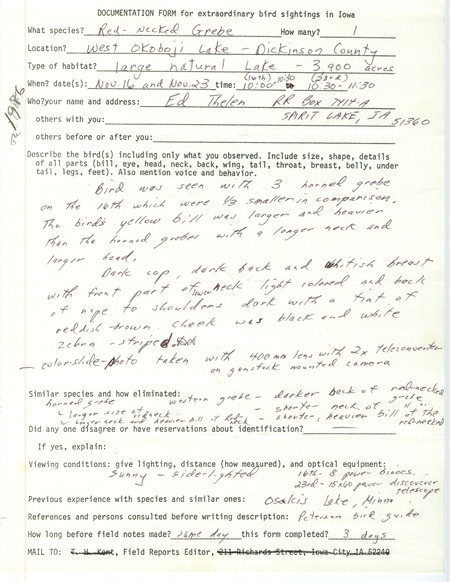 DOCUMENTATION FORM for extraordinary bird sightings in Iowa
What species? Red-Necked Grebe How many? 1
Location? West Okoboji Lake - Dickinson County
Type of habitat? large natural Lake - 3900 acres
When? date(s): Nov. 16 and Nov. 23 time: (16th) 10:00 to 10:30 (23rd) 10:30-11:30
Who? your name and address: Ed Thelen RR Box 7414-A
others with you: SPIRIT LAKE, IA 51360
others before or after you:
1986
Describe the bird(s) including only what you observed. Include size, shape, details
of all parts (bill, eye, head, neck, back, wing, tail, throat, breast, belly, under
tail, legs, feet). Also mention voice and behavior.
Bird was seen with 3 horned grebe
on the 16th which were 1/3 smaller in comparison.
The birds yellow bill was larger and heavier
than the horned grebes with a longer neck and
larger head.
Dark cap, dark back and whitish breast
with front part of lower neck light colored and back
of nape to shoulders dark with a tint of
reddish-brown. Cheek was black and white
zebra-striped
color-slide-photo taken with 400 mm lens with 2x teleconverter
on gunstock mounted camera
Similar species and how eliminated:
horned grebe western grebe - darker back of red-necked grebe
larger size of redneck - shorter neck of " "
longer neck and heavier bill of redneck - shorter, heavier bill of the red-necked
Did any one disagree or have reservations about identification? —
If yes, explain:
Viewing conditions: give lighting, distance (how measured), and optical equipment:
Sunny - side-lighted 16th - 8 power binocs.
23rd - 15x60 power discoverer telescope
Previous experience with species and similar ones: Osakis Lake, Minn
References and persons consulted before writing description: Peterson bird guide
How long before field notes made? same day this form completed? 3 days
MAIL TO: T. H. Kent, Field Reports Editor, 211 Richards Street, Iowa City IA 52240